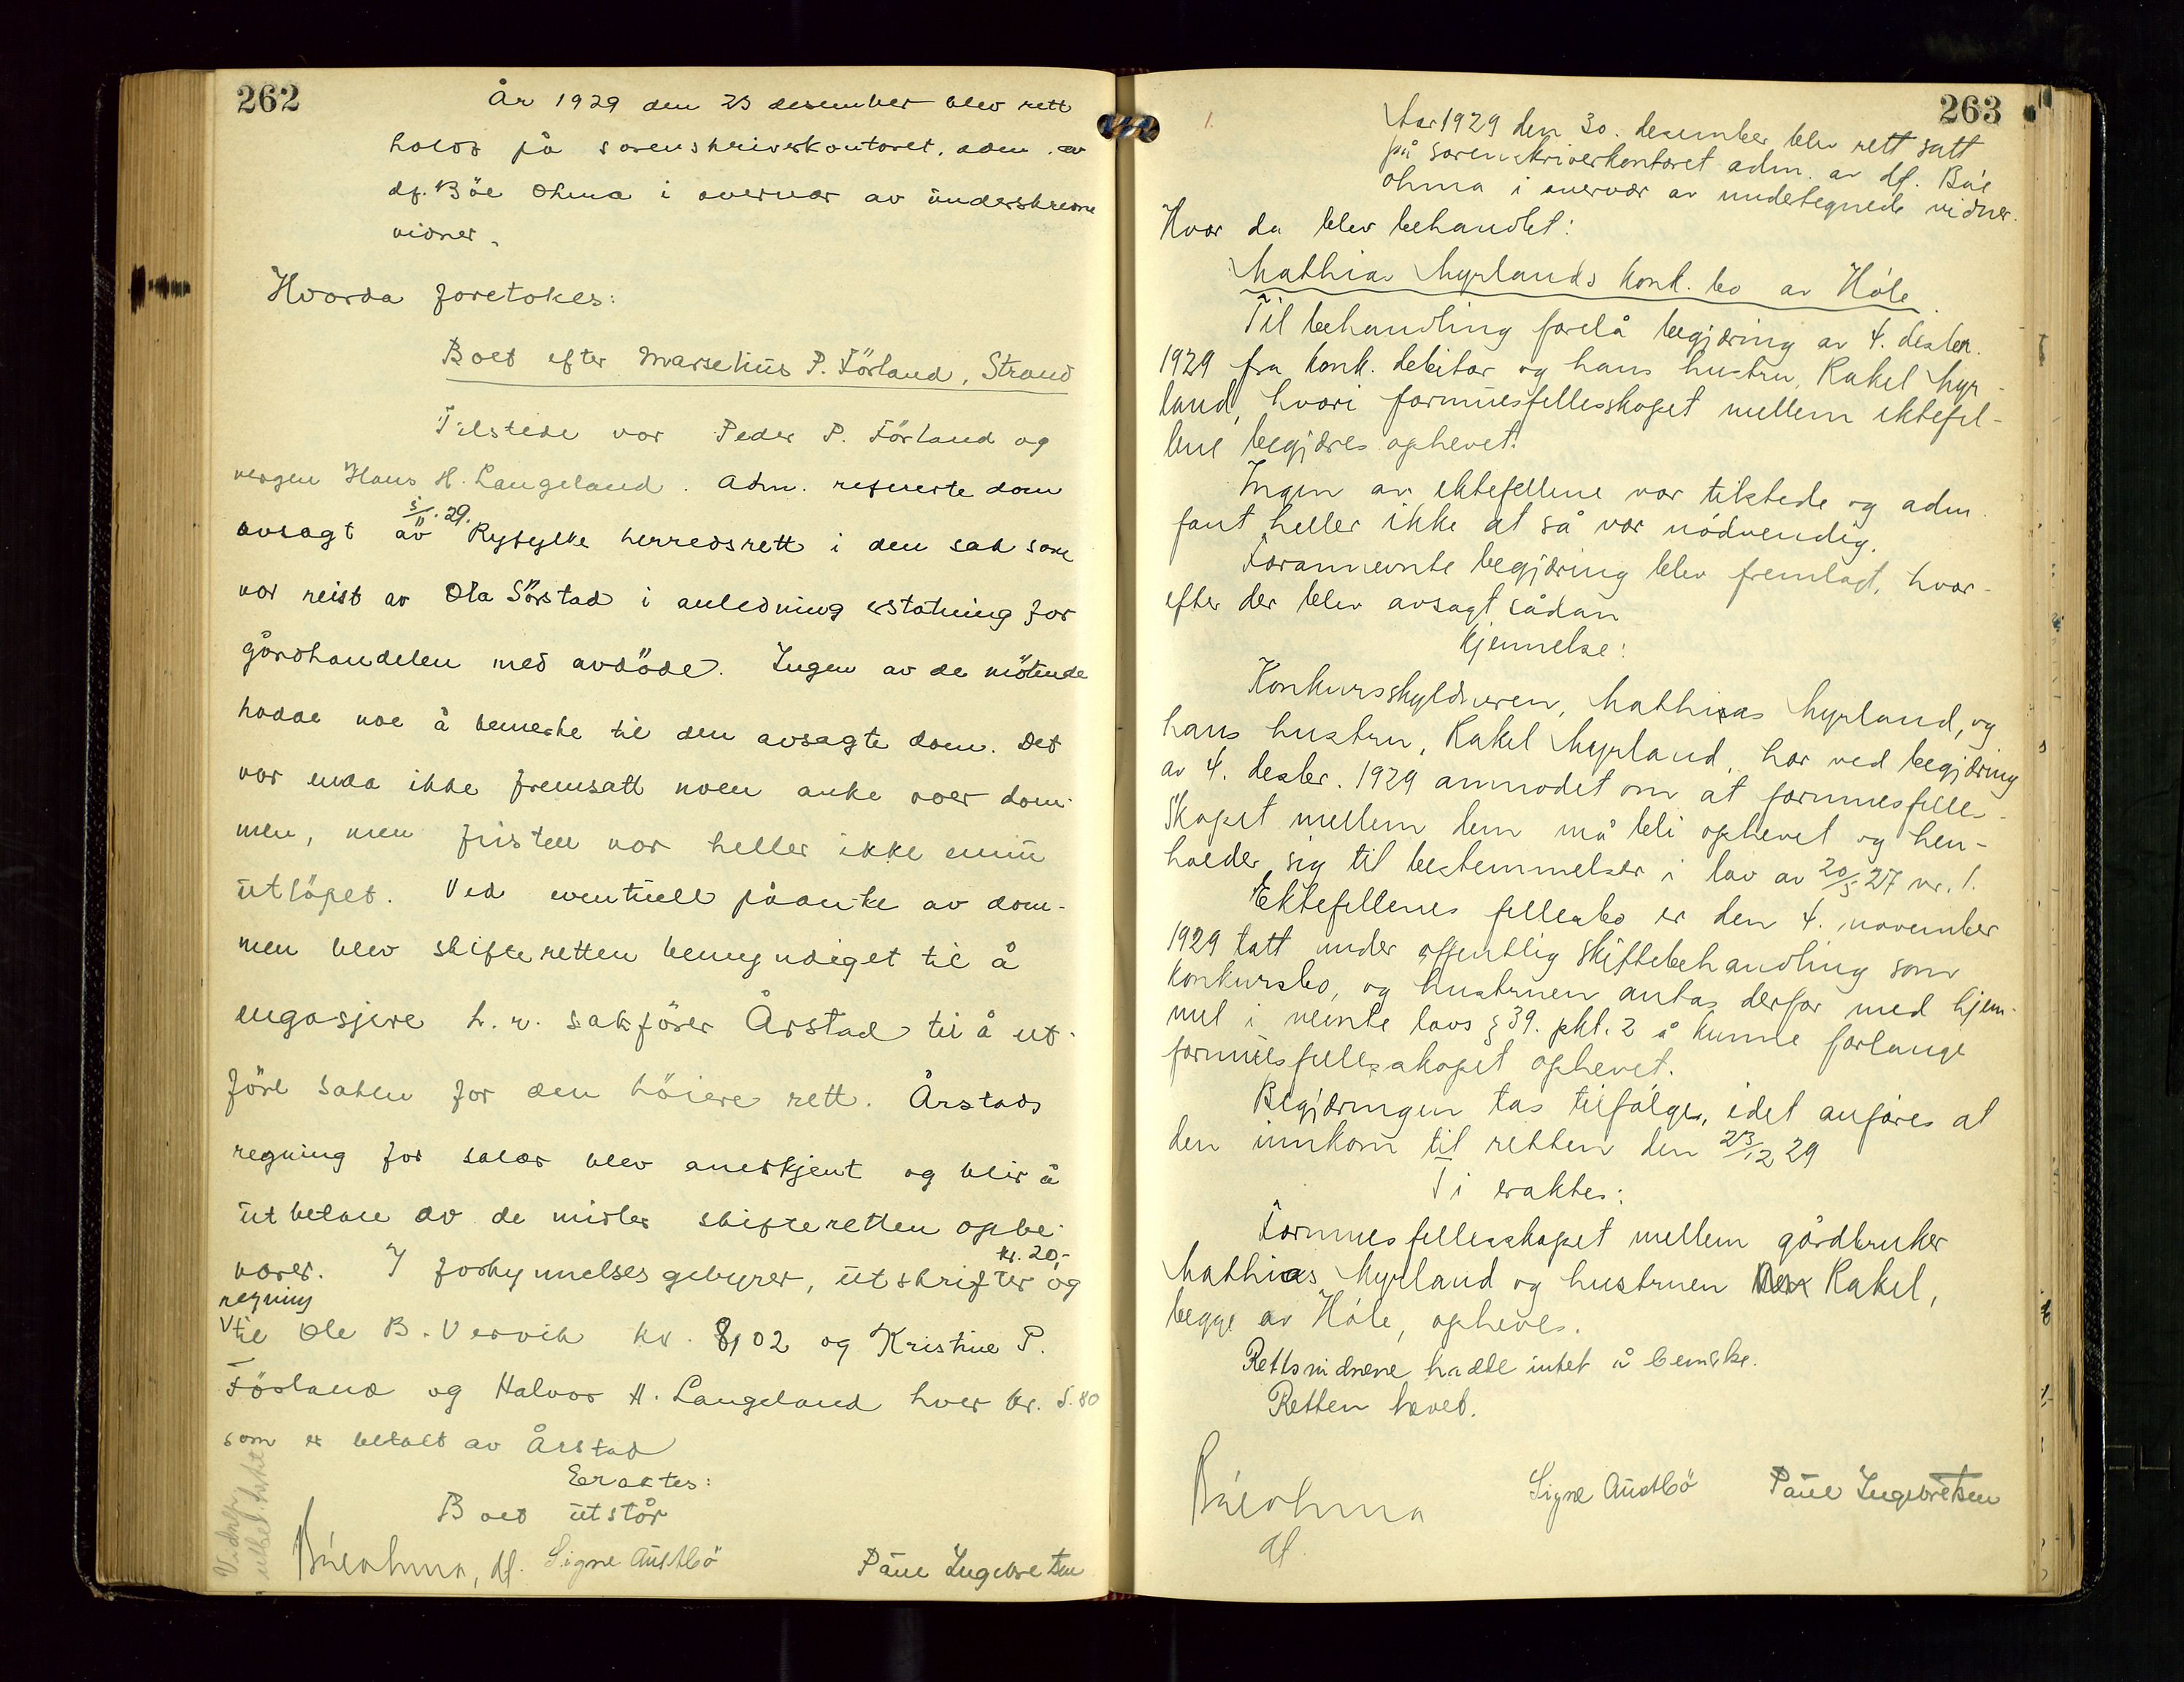 262
År 1929 den 23 desember blev rett
holdt på sorenskriverkontoret. adm. av
df. Böe Ohma i overvær av underskrevne
vidner.
Hvorda foretokes:
Boet efter Marselius P. Förland, Strand
Tilstede var Peder P. Förland og
vergen Hans H. Langeland. Adm. refererte dom
5/11. 29.
avsagt av Ryfylke herredsrett i den sak som
var reist av Ola Sörstad i anledning erstatning for
gårdhandelen med avdöde. Ingen av de mötende
hadde noe å bemerke til den avsagte dom. Det
var enda ikke fremsatt noen anke over dom-
men, men fristen var heller ikke ennu
utlöpet. Ved eventuell påanke av dom-
men blev skifteretten bemyndiget til å
engasjere h. r. sakförer Årstad til å ut-
före saken for den höiere rett. Årstads
regning for salær blev anerkjent og blir å
utbetale av de midler skifteretten opbe-
kr. 20,-
varer. I forkynnelsesgebyrer, utskrifter og
regning
til Ole B. Vervik kr. 8,02 og Kristine P.
Förland og Halvor H. Langeland hver kr. 5.80
som er betalt av Årstad
Eraktes:
Boet utstår
Vidner
utbel.
Böeohma, df. Signe Austbö Paul Ingebretsen
263
1.
Aar 1929 den 30. desember blev rett satt
på sorenskriverkontoret adm. av df. Böe
ohma i overvær av undetegnede vidner.
Hvor da blev behandlet:
Mathias Myrlands konk. bo av Höle.
Til behandling forelå begjæring av 4. desber.
1929 fra konk. debitor og hans hustru, Rakel Myr-
land, hvori formuesfellesskapet mellem ektefel-
lene begjæres ophevet.
Ingen av ektefellene var tilstede og adm.
fant heller ikke at så var nödvendig.
Forannevnte begjæring blev fremlagt, hvor-
efter der blev avsagt sådan
kjennelse:
Konkursskyldneren, Mathias Myrland, og
hans hustru, Rakel Myrland, har ved begjæring
av 4. desbr. 1929 anmodet om at formuesfelle-
skapet mellem dem må bli ophevet og hen-
holder sig til bestemmelser i lov av 20/5 27 nr. 1.
Ektefellenes fellesbo er den 4. november
1929 tatt under offentlig skiftebehandling som
konkursbo, og hustruen antas derfor med hjem-
mel i nevnte lovs § 39. pkt. 2 å kunne forlange
formuesfellesskapet ophevet.
Begjæringen tas tilfölge, idet anföres at
den innkom til retten den 23/12 29
Ti eraktes:
Formuesfellesskapet mellem gårdbruker
Mathias Myrland og hustruen Rakel,
begge av Höle, opheves.
Rettsvidnene hadde intet å bemerke.
Retten hævet.
Böeohma Signe Austbö Paul Ingebretsen
df.